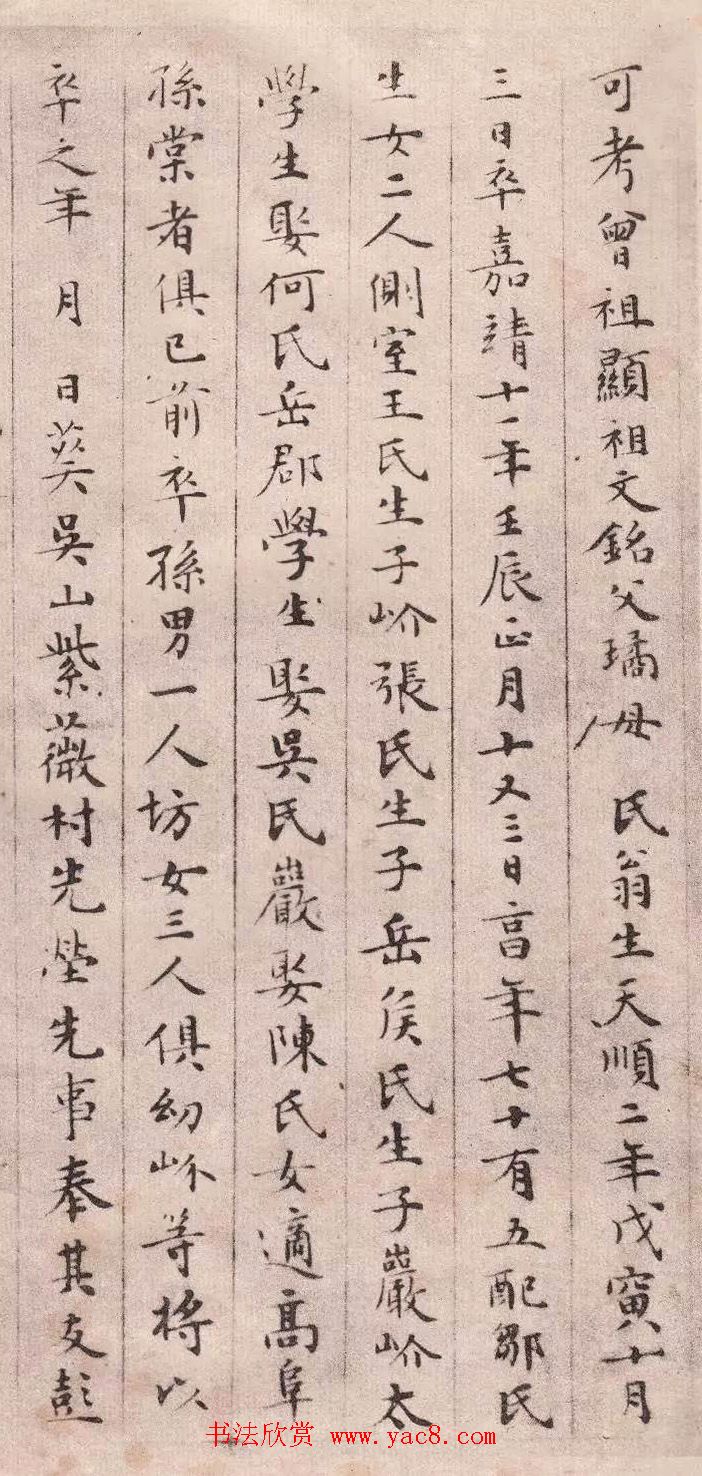 可考曾祖顯祖文銘父璚母 氏翁生天順二年戊寅十月
三日卒嘉靖十一年壬辰正月十又三日高年七十有五配鄒氏
生女二人側室王氏生子岕張氏生子岳侯氏生子巖岕太
學生娶何氏岳郡學生娶吳氏巖娶陳氏女適高阜
孫棠者俱已前卒孫男一人坊女三人俱幼岕等將以
卒之年 月 日葬吳山紫薇村先塋先事奉其友彭
书法欣赏 www.yac8.com